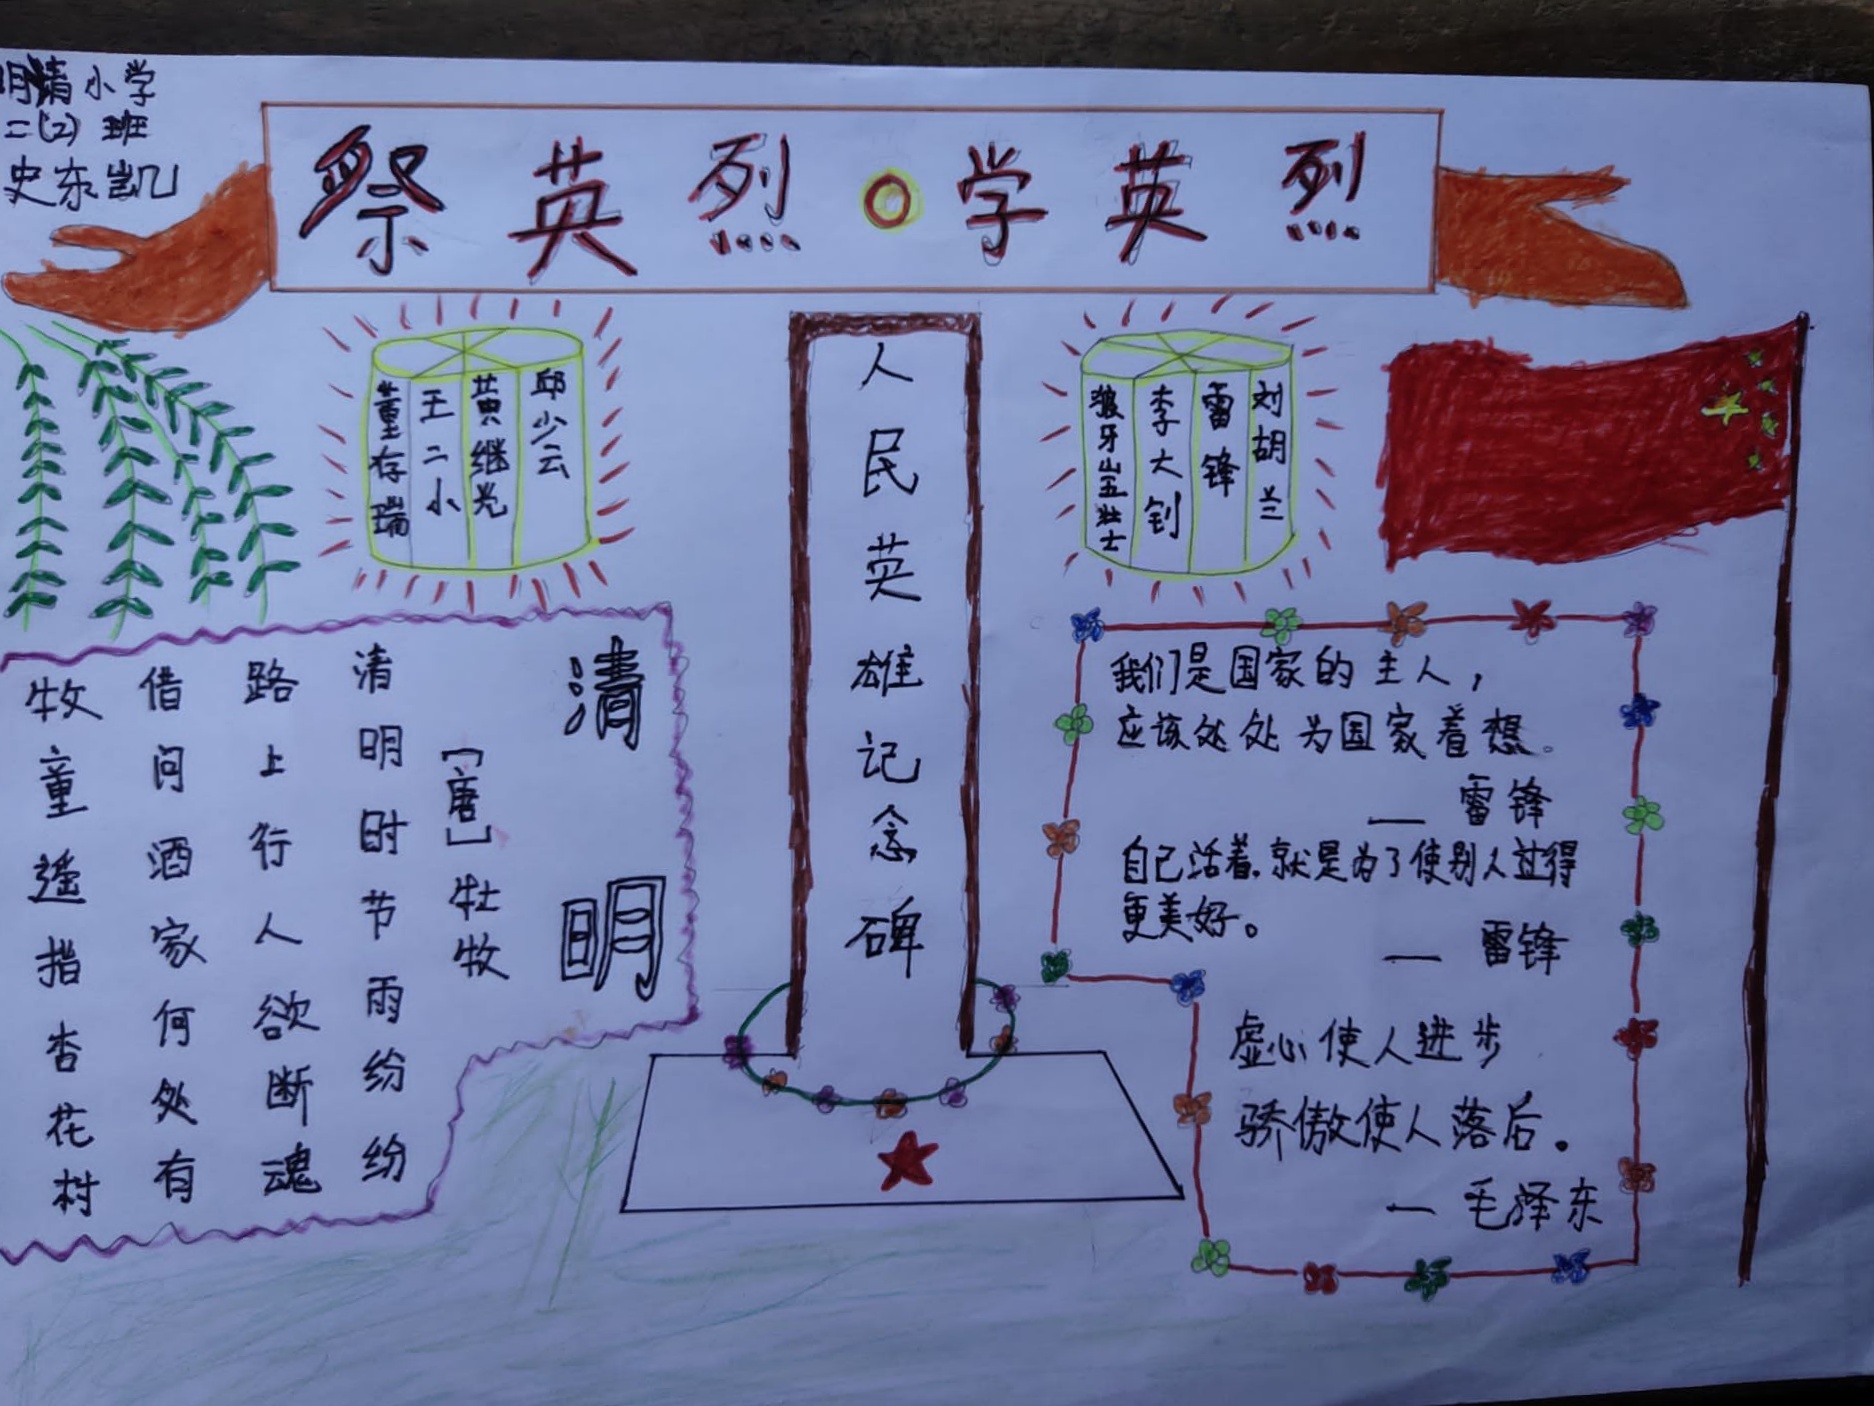 明清小学
二(2)班
史东凯
祭英烈·学英烈
董存瑞
王二小
黄继光
邱少云
人民英雄记念碑
狼牙山五壮士
李大钊
雷锋
刘胡兰
清明
[唐]牡牧
清明时节雨纷纷
路上行人欲断魂
借问酒家何处有
牧童遥指杏花村
我们是国家的主人，
应该处处为国家着想。
——雷锋
自己活着，就是为了使别人过得
更美好。
——雷锋
虚心使人进步
骄傲使人落后。
—毛泽东